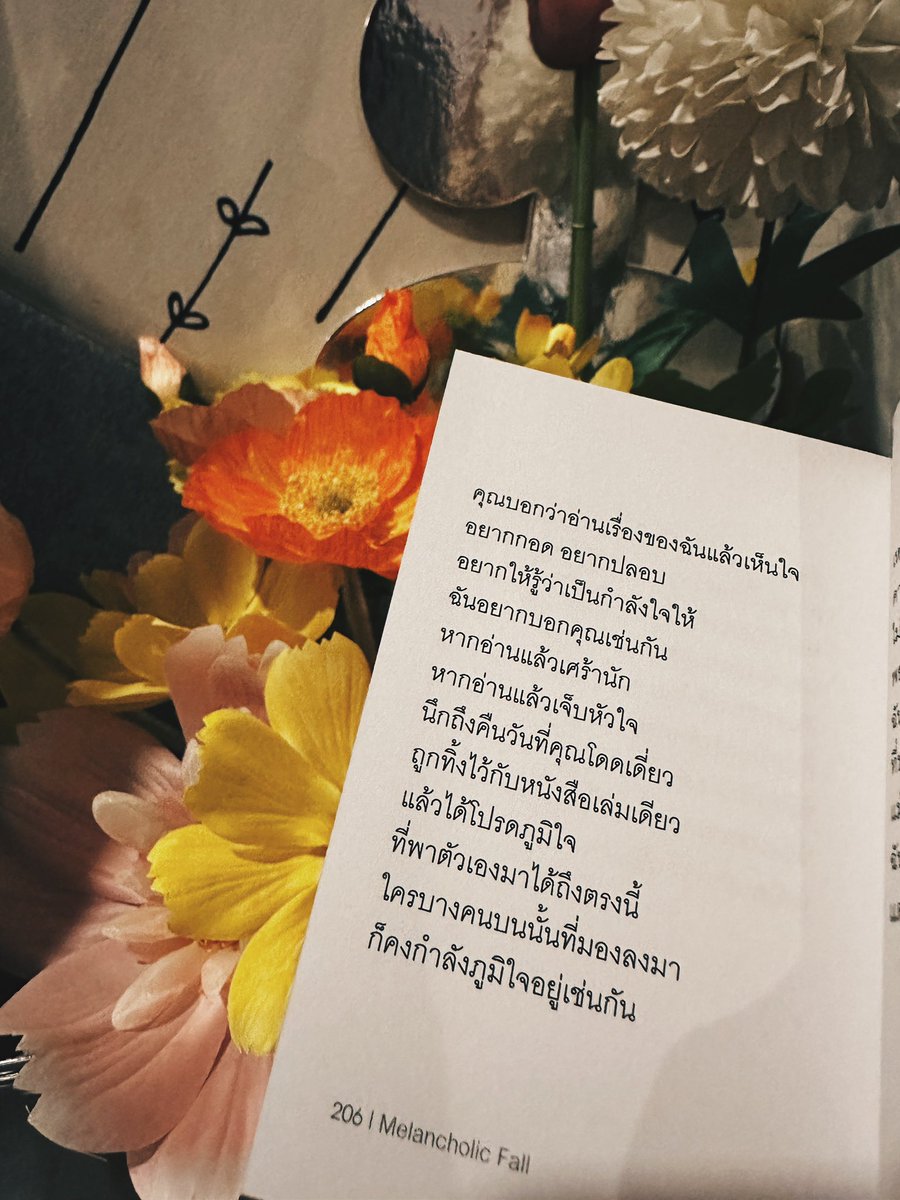 คุณบอกว่าอ่านเรื่องของฉันแล้วเห็นใจ
อยากกอด อยากปลอบ
อยากให้รู้ว่าเป็นกำลังใจให้
ฉันอยากบอกคุณเช่นกัน
หากอ่านแล้วเศร้านัก
หากอ่านแล้วเจ็บหัวใจ
นึกถึงคืนวันที่คุณโดดเดี่ยว
ถูกทิ้งไว้กับหนังสือเล่มเดียว
แล้วได้โปรดภูมิใจ
ที่พาตัวเองมาได้ถึงตรงนี้
ใครบางคนบนนั้นที่มองลงมา
ก็คงกำลังภูมิใจอยู่เช่นกัน
206 | Melancholic Fall